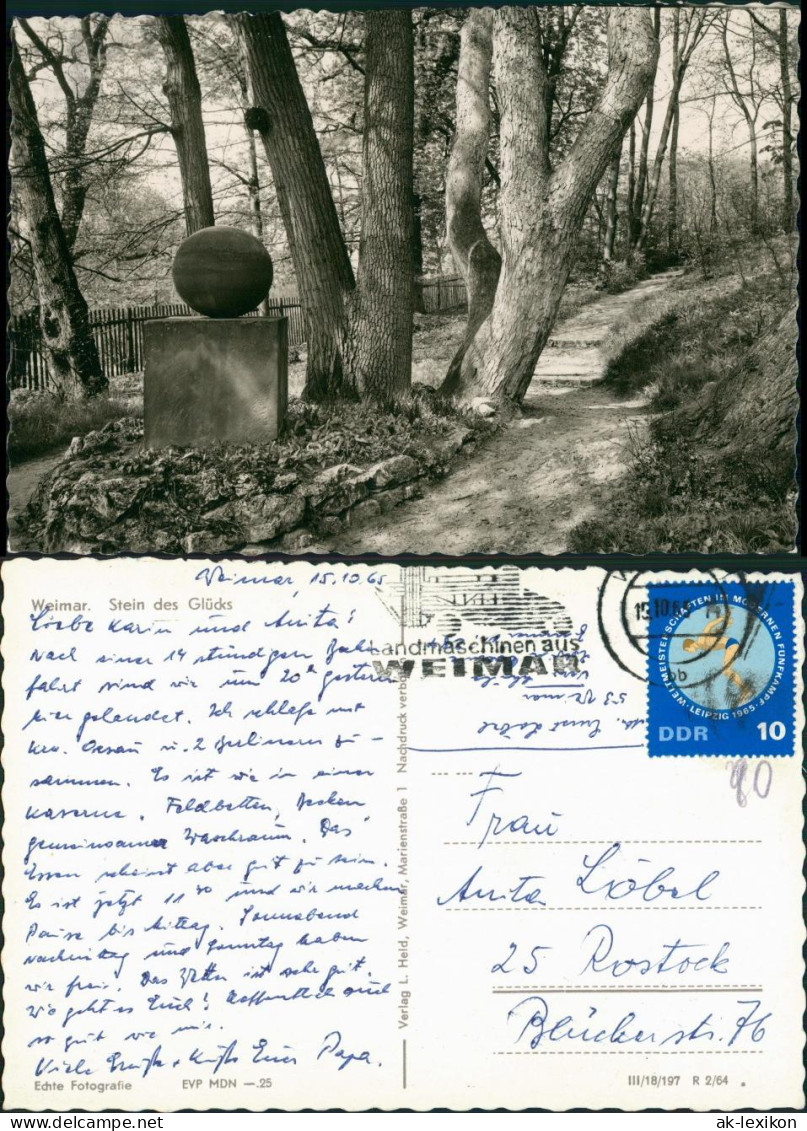 Weimar, 15.10.65
Weimar. Stein des Glücks
Liebe Karin und Anita!
Nach einer 14 stündigen Bahn-
fahrt sind wir um 20 gestern
hier gelandet. Ich schlafe mit
u. 2 Berlinern zu-
sammen. Es ist wie in einer
Kaserne. Feldbetten, Decken
gemeinsamer Waschraum. Das
Essen scheint aber gut zu sein.
Es ist jetzt 11 und wir machen
Pause bis Mittag. Sonnabend
Nachmittag und Sonntag haben
wir frei. Das Wetter ist sehr gut.
Wie geht es Euch? Hoffentlich auch
so gut wie mir.
Viele Grüße + Küsse Euer Papa.
Echte Fotografie EVP MDN —.25
Verlag L. Held, Weimar, Marienstraße 1 Nachdruck verboten
Landmaschinen aus
WEIMAR
15.10.65
bb
WELTMEISTERSCHAFTEN IM MODERNEN FÜNFKAMPF
LEIPZIG 1965
DDR 10
53 Weimar
90
Frau
Anita Löbel
25 Rostock
Blücherstr. 76
III/18/197 R 2/64
ak-lexikon.com